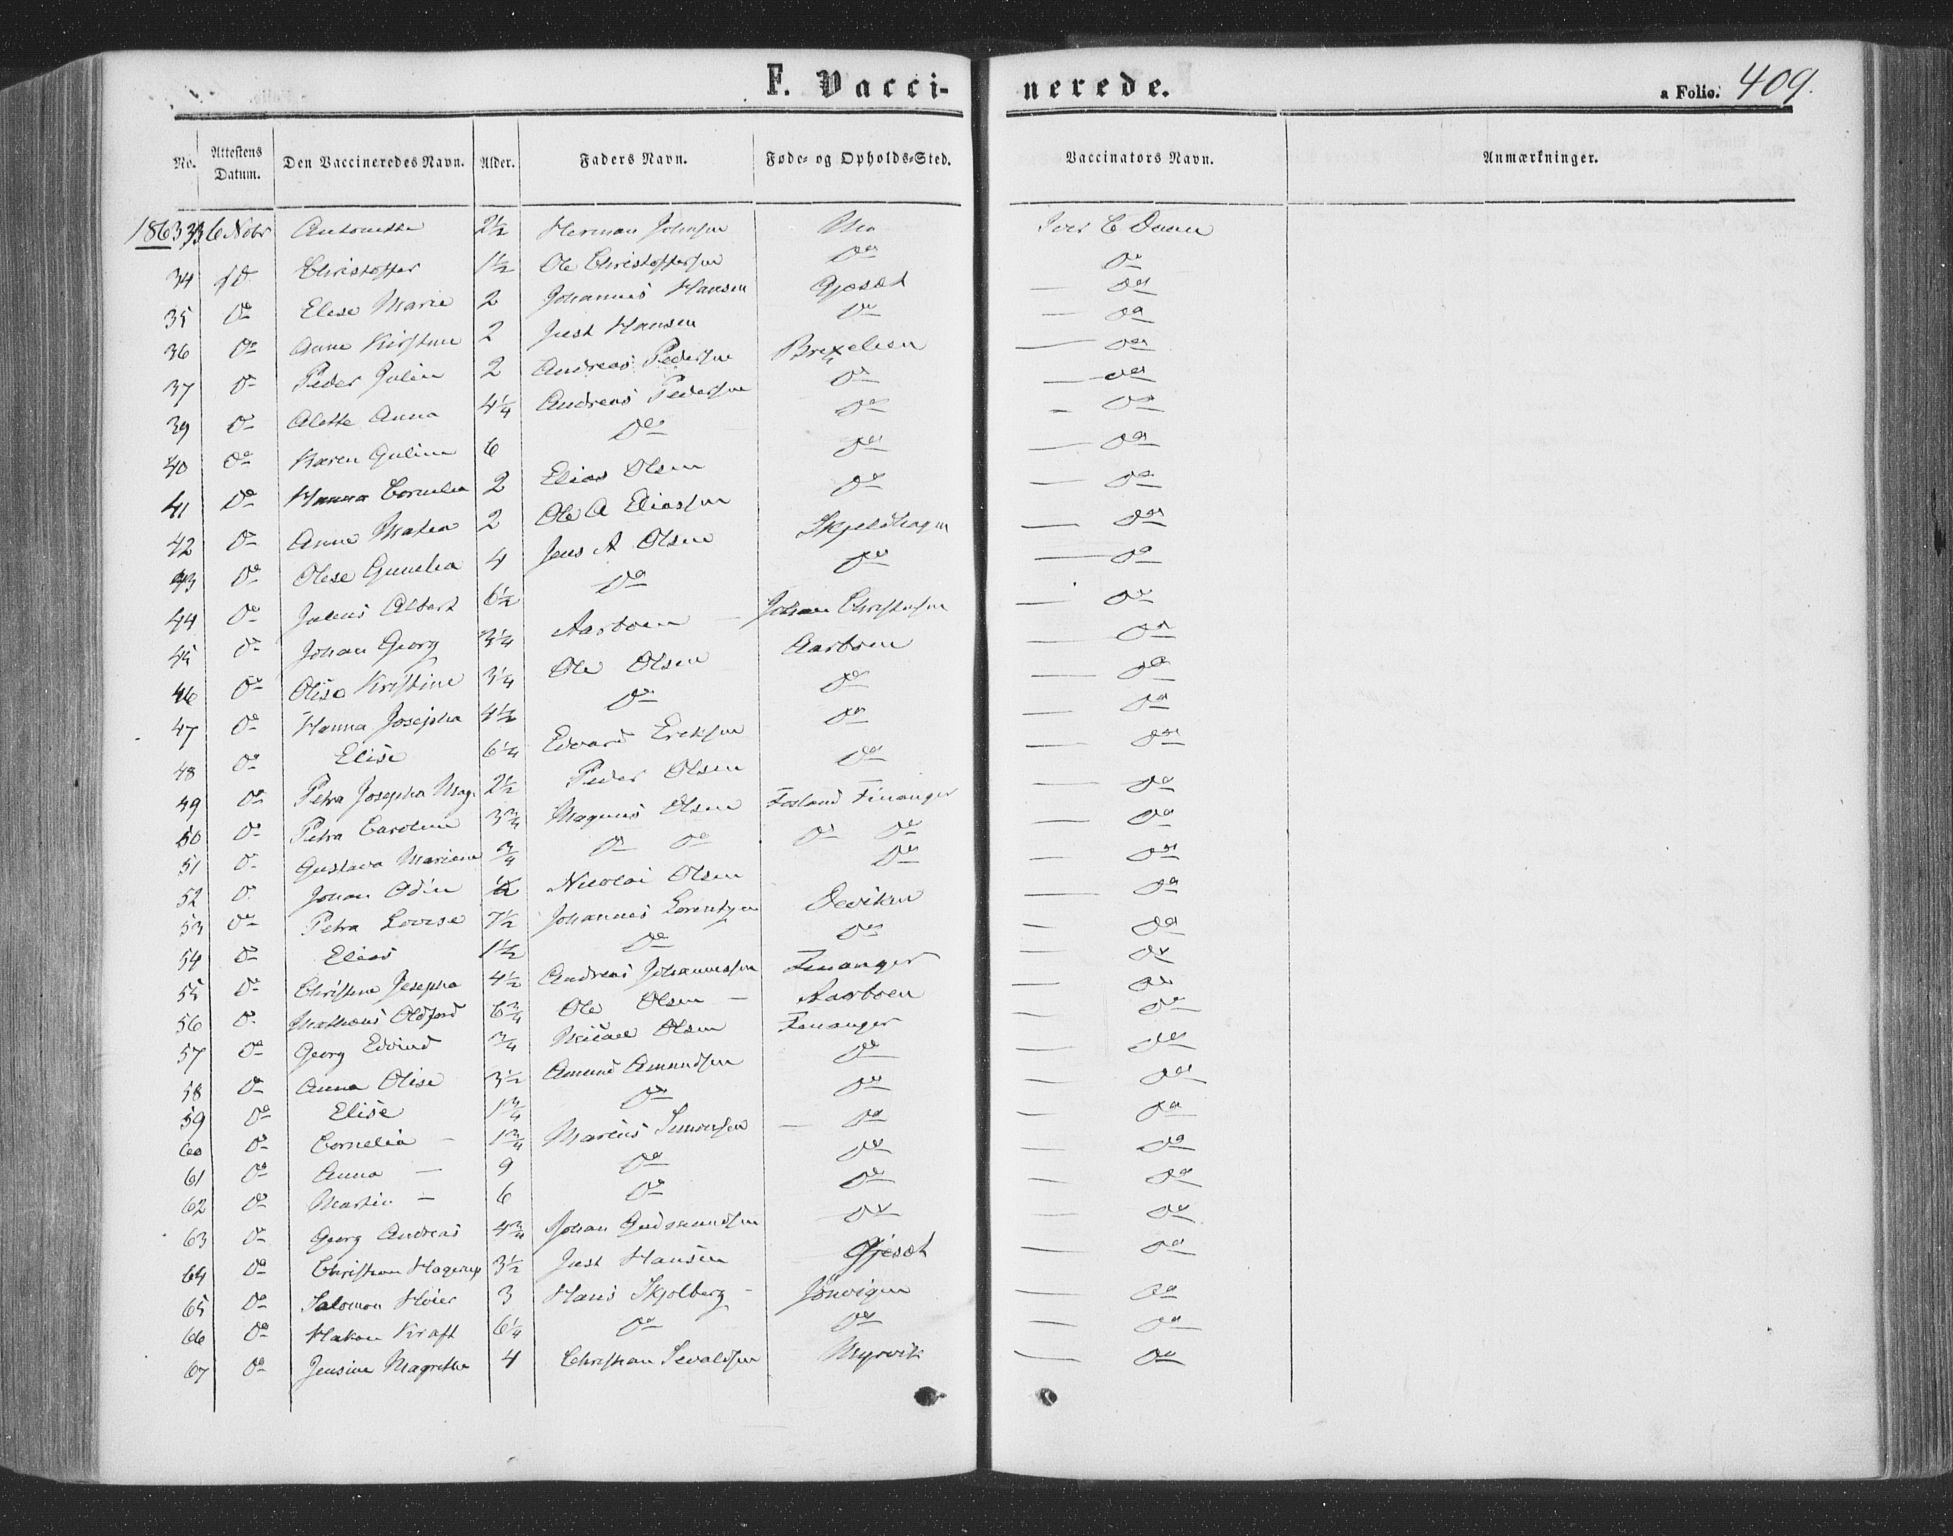 F. Vacci- nerede. a Folio. 409.
No. Attestens Datum. Den Vaccineredes Navn. Alder. Faders Navn. Føde- og Opholds-Sted. Vaccinators Navn. Anmærkninger.
1863 33 6 Nobr Antonette 2½ Herman Johnsen Iver C Daun
34 Do Christoffer 1½ Ole Christoffersen Do Do
35 Do Elese Marie 2 Johannes Hansen Gjesæt — Do
36 Do Anne Kirstine 2 Just Hansen Do — Do
37 Do Peder Julin 2 Andreas Pedersen — Do
39 Do Alette Anna 4¼ Andreas Pedersen Do — Do
40 Do Karen Guline 6 Do Do — Do
41 Do Hanna Cornelia 2 Elias Olsen Do — Do
42 Do Anne Matea 2 Ole A Eliassen Do — Do
43 Do Olese Gunelia 4 Jens A Olsen Skjelshagen — Do
44 Do Julius Albert 6½ Do Do — Do
45 Do Johan Georg 3¼ Aarboen — Johan Christensen — Do
46 Do Olise Kristine 3¼ Ole Olsen Aarboen — Do
47 Do Hanna Josepha 4½ Do Do — Do
48 Do Elise 6¼ Edvard Eriksen Do — Do
49 Do Petra Josepha Mag. 2½ Peder Olsen Do — Do
50 Do Petra Caroline 3¾ Magnus Olsen Fosland Finanger — Do
51 Do Gustava Mariane ¾ Do Do Do Do — Do
52 Do Johan Odin ½ Nicolai Olsen Do — Do
53 Do Petra Lovise 7½ Johannes Lorentzen Deviken — Do
54 Do Elias 1½ Do Do — Do
55 Do Christine Josepha 4½ Andreas Johannessen Finanger — Do
56 Do Mathæus Oldford 6¾ Ole Olsen — Aarboen — Do
57 Do Georg Edvind ¾ Micael Olsen Finanger — Do
58 Do Anna Olise 3½ Amund Amundsen Do — Do
59 Do Elise 1¾ Do Do — Do
60 Do Cornelia — 1¾ Marcus Simonsen — Do — Do
61 Do Anna — 9 Do Do — Do
62 Do Martin — 6 Do Do — Do
63 Do Georg Andreas 4¾ Johan Gudmundsen Do — Do
64 Do Christian Hagerup 3½ Just Hansen Gjesæt — Do
65 Do Salomon Høier 3 Hans Skjolberg — Jønvigen — Do
66 Do Hakon Kraft 6¼ Do Do — Do
67 Do Jensine Magrethe 4 Christian Sevaldsen Myrvik — Do